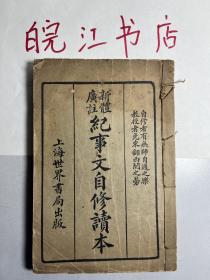 皖江书店
自修者有無師自通之樂
教授者免東翻西閱之勞
新體
廣註
紀事文自修讀本
上海世界書局出版